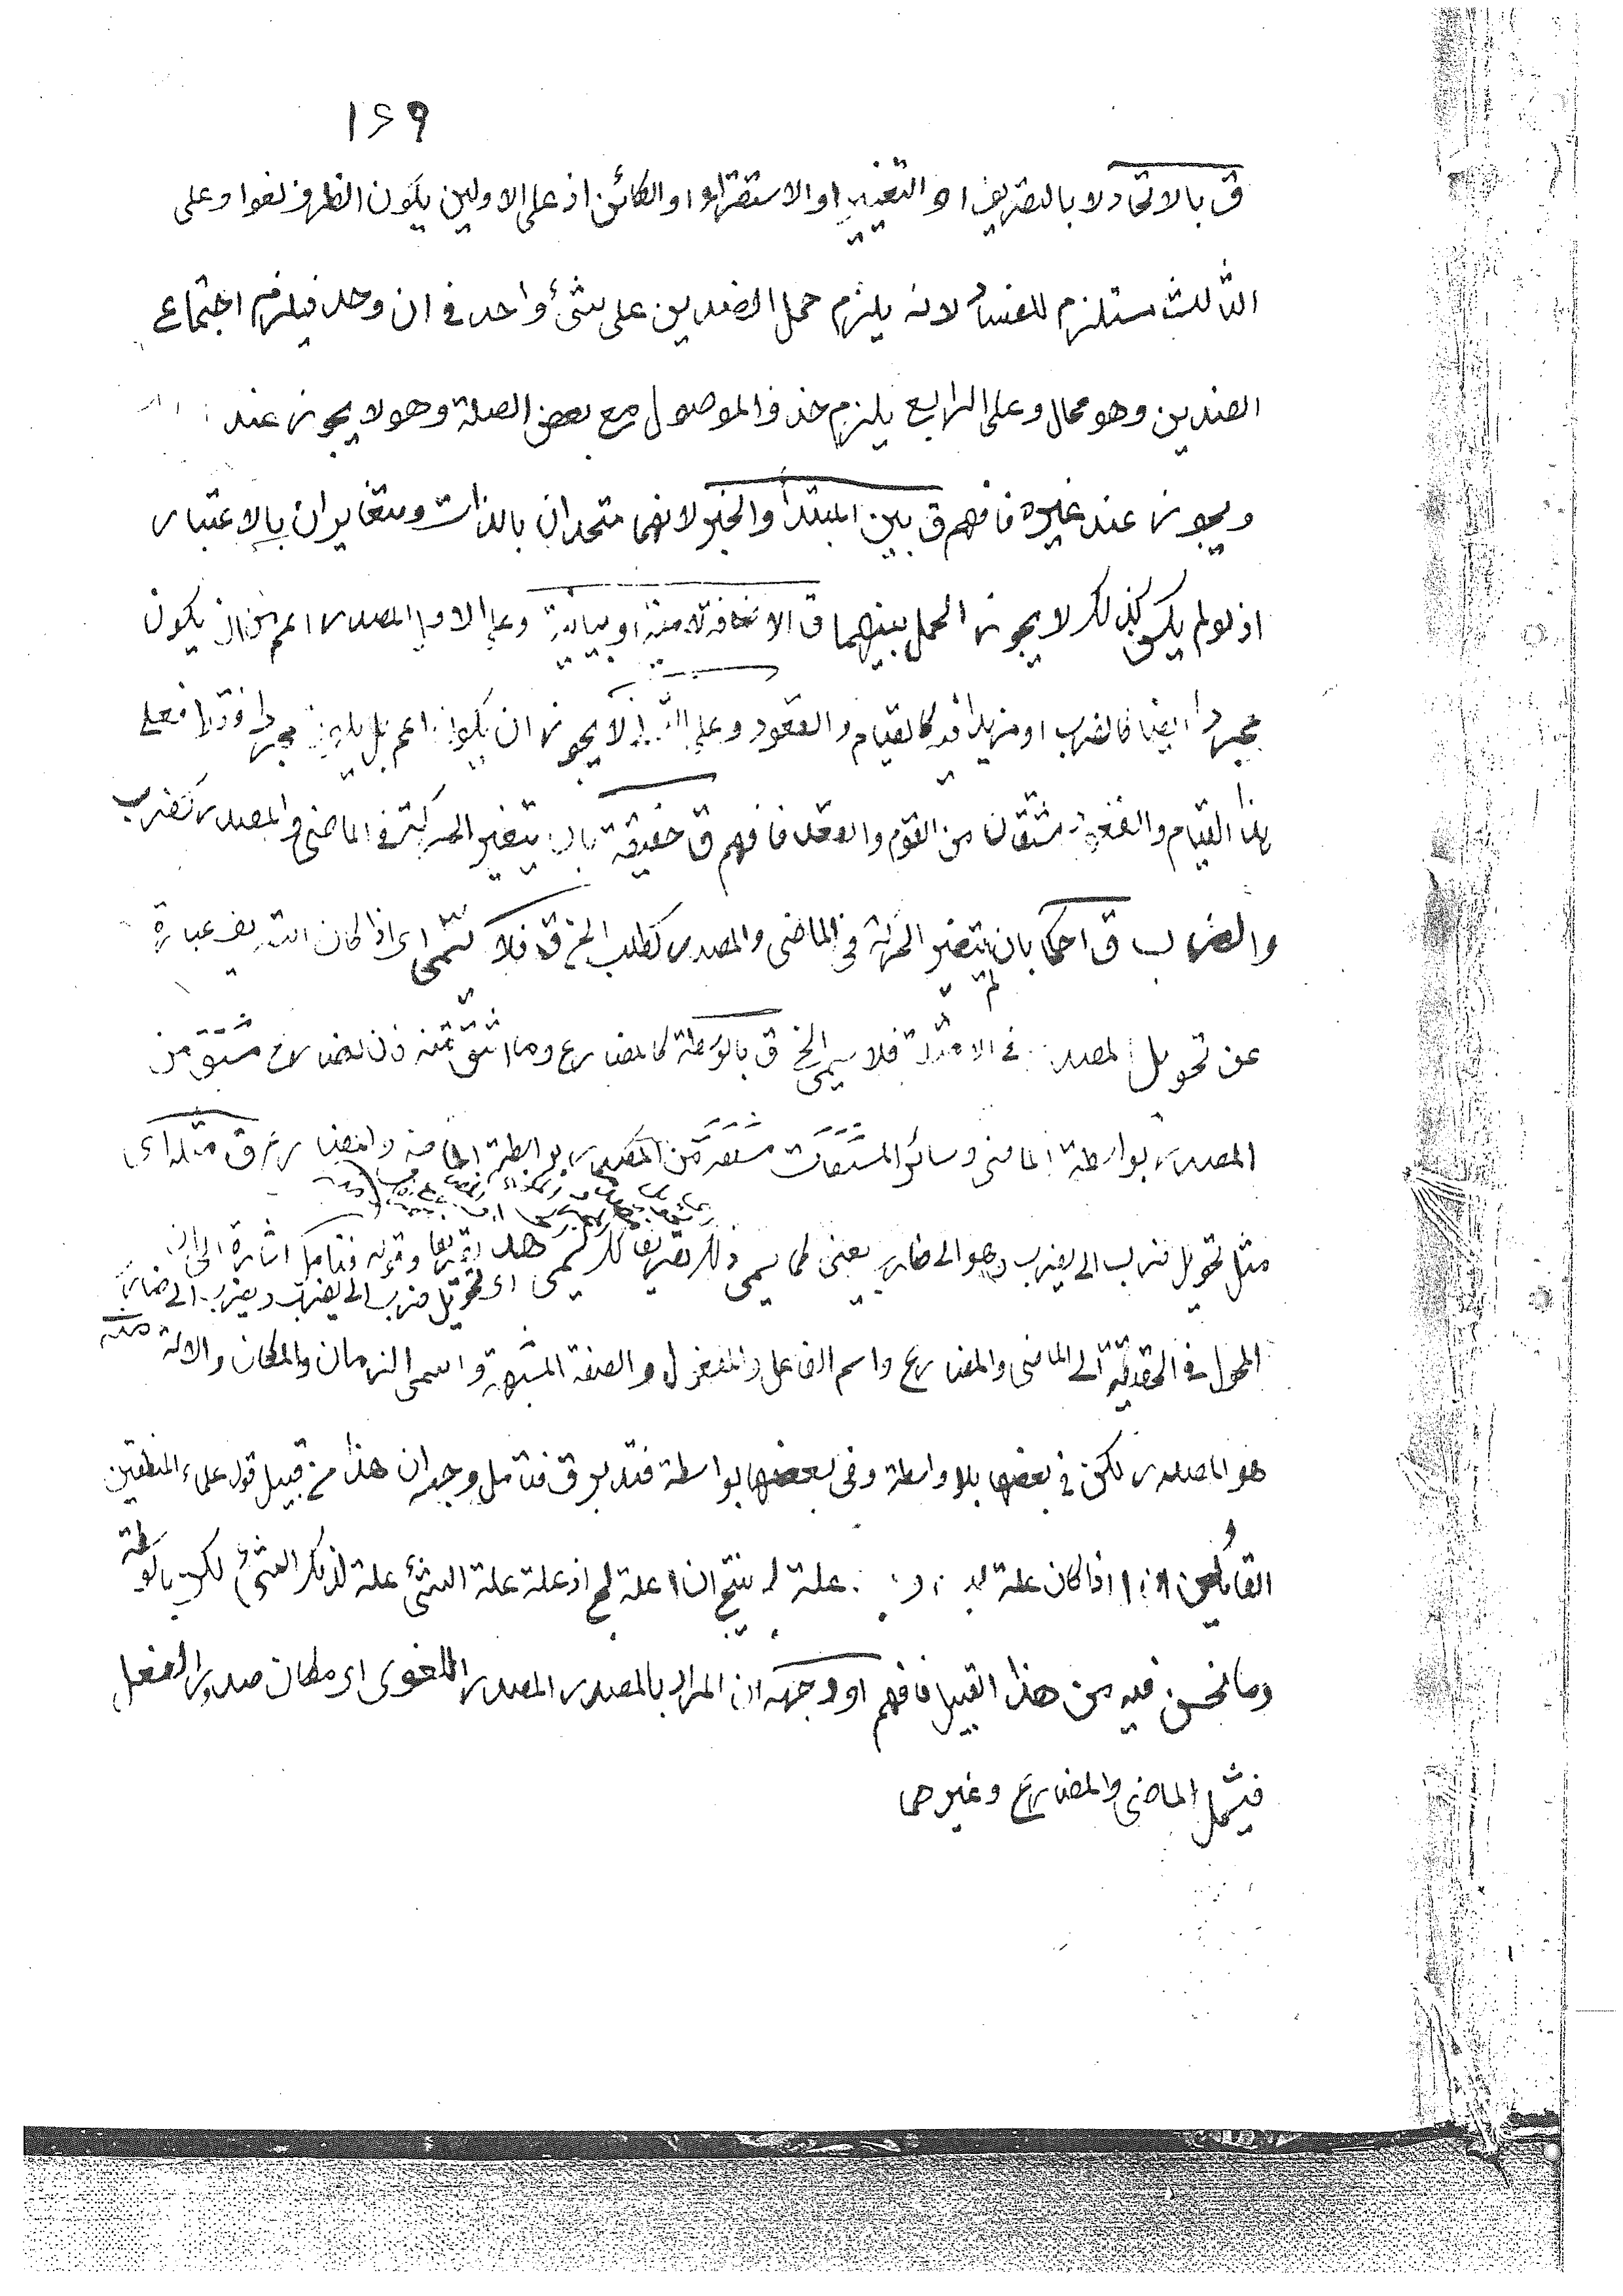 ١٢٩
ق بالاتحاد لا بالتصريف او التغيير او الاستقراء او الكائن اذ على الاولين يكون الظرف لغوا وعلى
الثالث مستلزم للفساد لانه يلزم حمل الضدين على شئ واحد فى ان وحد فيلزم اجتماع
الضدين وهو محال وعلى الرابع يلزم حذف الموصول مع بعض الصلة وهو لا يجوز عند
ويجوز عند غيره فافهم ق بين المبتدأ والخبر لانهما متحدان بالذات ومتغايران بالاعتبار
اذ لو لم يكن كذلك لا يجوز الحمل بينهما ق الاضافة لامية او بيانية وعلى الاول المصدر اعم من ان يكون
مجردا ايضا فالضرب او مزيدا فيه كالقيام والقعود وعلى لا يجوز ان يكون اعم بل مجردا فعلى
هذا القيام والقعود مشتقان من القوم والقعد فافهم ق حقيقة بان يتغير الحركة فى الماضى والمصدر كضرب
والضرب ق احكا بان لم يتغير الحركة فى الماضى والمصدر كطلب الخ ق فلا يسمى اى اذا كان التصريف عبارة
عن تحويل المصدر فى الامثلة فلا يسمى الخ ق بالوسطة كالمضارع وما اشتق منه فان المضارع مشتق من
المصدر بواسطة الماضى وسائر المشتقات مشتقة من المصدر بواسطة الماضى والمضارع ق مثله اى
مثل تحويل ضرب الى يضرب وهو الى ضارب يعنى كما يسمى ذلك تصريفا كذلك يسمى هذا تصريفا وقوله فتامل اشارة الى ان
اى تحويل ضرب الى يضرب ويضرب الى ضارب منه
المحول فى الحقيقة الى الماضى والمضارع واسم الفاعل والمفعول والصفة المشبهة واسمى الزمان والمكان والالة
هو المصدر لكن فى بعضها بلا واسطة وفى بعضها بواسطة فتدبر ق فتامل وجهه ان هذا من قبيل قول علماء المنطقين
القائلين اذا كان علة علة لج ينتج ان ا علة لج اذ علة علة الشئ علة لذلك الشئ لكن بالوسطة
وما نحن فيه من هذا القبيل فافهم او وجهه ان المراد بالمصدر المصدر اللغوى اى مكان صدور الفعل
فيشمل الماضى والمضارع وغيرهما